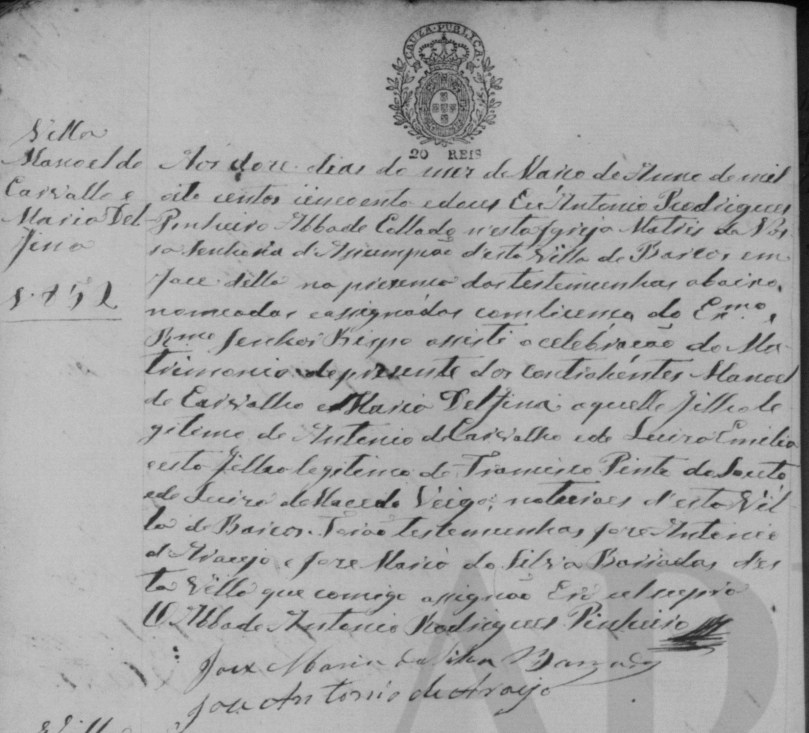 CAUZA PUBLICA
20 REIS
Villa
Manoel de
Carvalho e
Maria Del-
fina
1852
Aos doze dias do mez de Março de Anno de mil
oito centos cincoenta e dous Eu Antonio Rodrigues
Pinheiro Abbade Collado n'esta Igreja Matriz da Nos-
sa Senhora d'Assumpção d'esta Villa de Barcos em
face della na prezença das testemunhas abaixo
nomeadas e assignadas com licença do Exmo.
Rmo Senhor Bispo assisti a celebração do Ma-
trimonio de prezente dos contrahentes Manoel
de Carvalho e Maria Delfina aquelle filho le
gitimo de Antonio de Carvalho e de Luiza Emilia
e esta filha legitima de Francisco Pinto de Souto
e de Luiza de Macedo Veiga, naturaes d'esta Vil
la de Barcos. Serão testemunhas Joze Antonio
d'Araujo e Joze Maria da Silva Barradas des
ta Villa que comigo assignão Eu
O Abbade Antonio Rodrigues Pinheiro
Joze Maria da Silva Barradas
Joze Antonio de Araujo
Villa